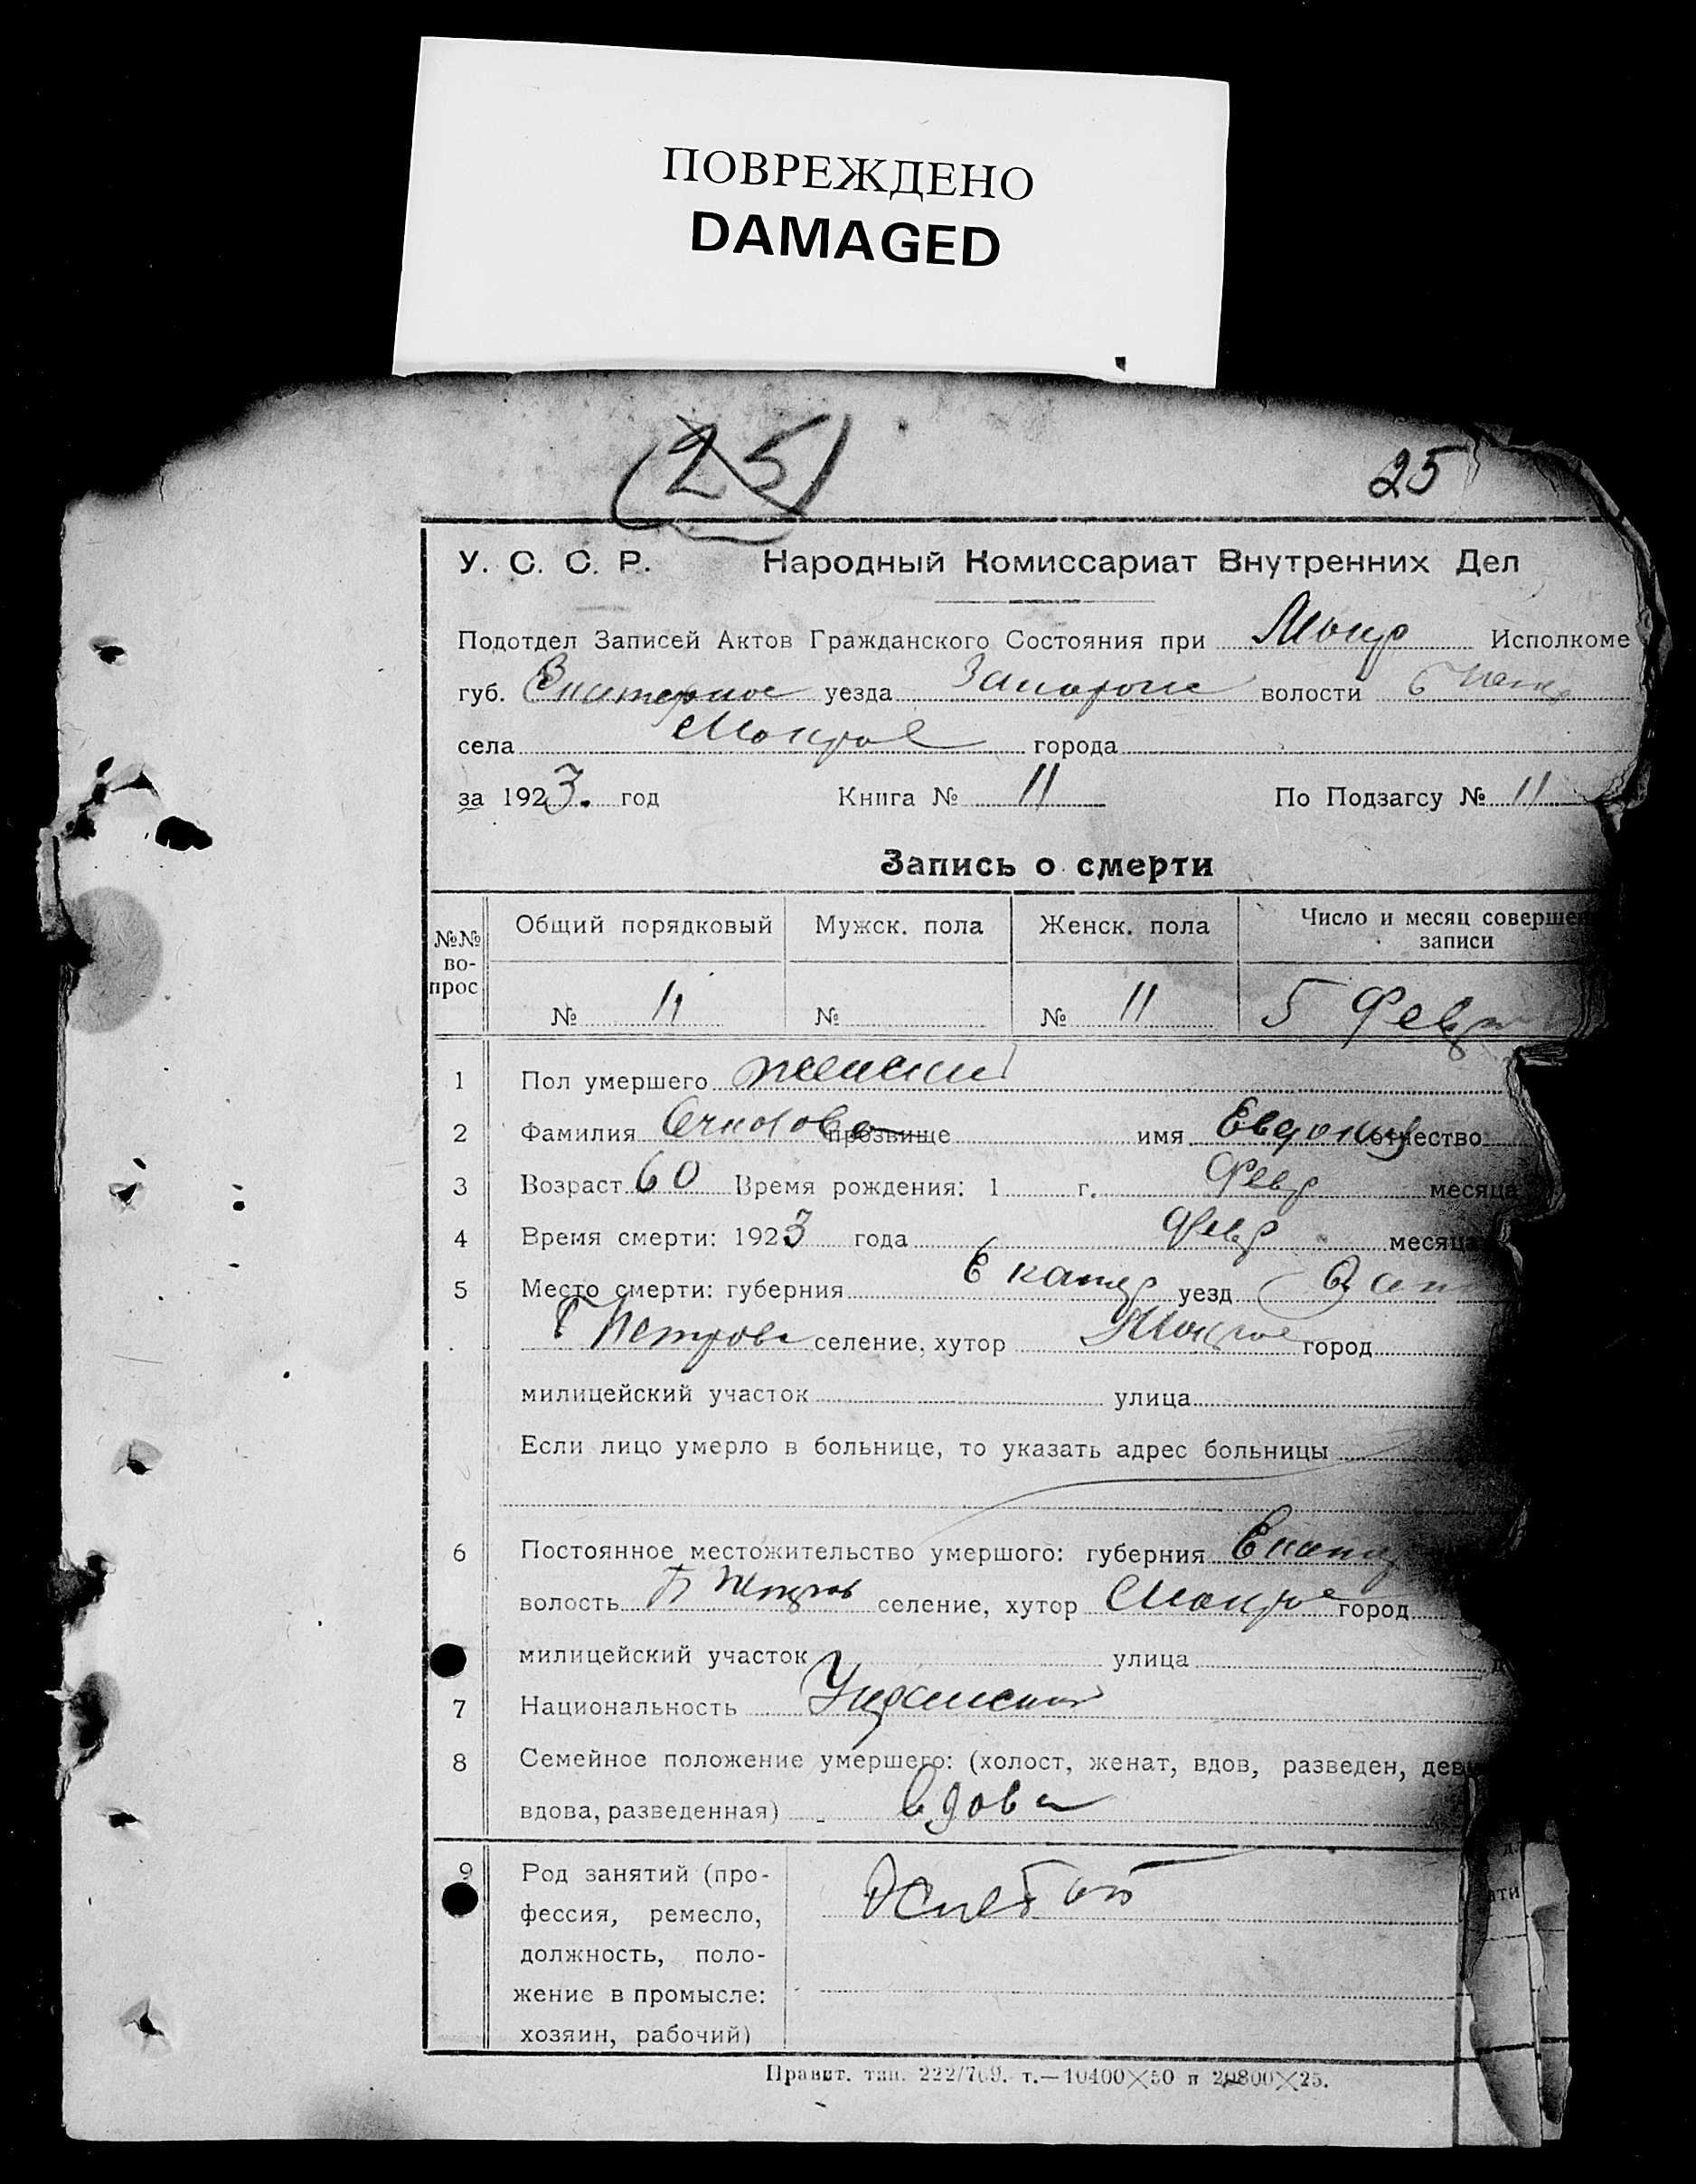 ПОВРЕЖДЕНО
DAMAGED
(25)
25
У. С. С. Р. Народный Комиссариат Внутренних Дел
Подотдел Записей Актов Гражданского Состояния при Мокр Исполкоме
губ. уезда волости
села Мокрое города
за 1923. год Книга № 11 По Подзагсу № 11
Запись о смерти
№№ во-прос Общий порядковый Мужск. пола Женск. пола Число и месяц соверше
записи
№ 11 № № 11 5 Февр
1 Пол умершего женский
2 Фамилия прозвище имя Евдокия отчество
3 Возраст 60 Время рождения: 1 г. Февр месяца
4 Время смерти: 1923 года Февр месяца
5 Место смерти: губерния Екатер уезд Зап
Б Петров селение, хутор Мокрое город
милицейский участок улица
Если лицо умерло в больнице, то указать адрес больницы
6 Постоянное местожительство умершого: губерния Екатер
волость Б Петров селение, хутор Мокрое город
милицейский участок улица
7 Национальность
8 Семейное положение умершего: (холост, женат, вдов, разведен, дев
вдова, разведенная) вдова
9 Род занятий (про-
фессия, ремесло,
должность, поло-
жение в промысле:
хозяин, рабочий)
Правит. тип. 222/769. т.—10400×50 и 20800×25.